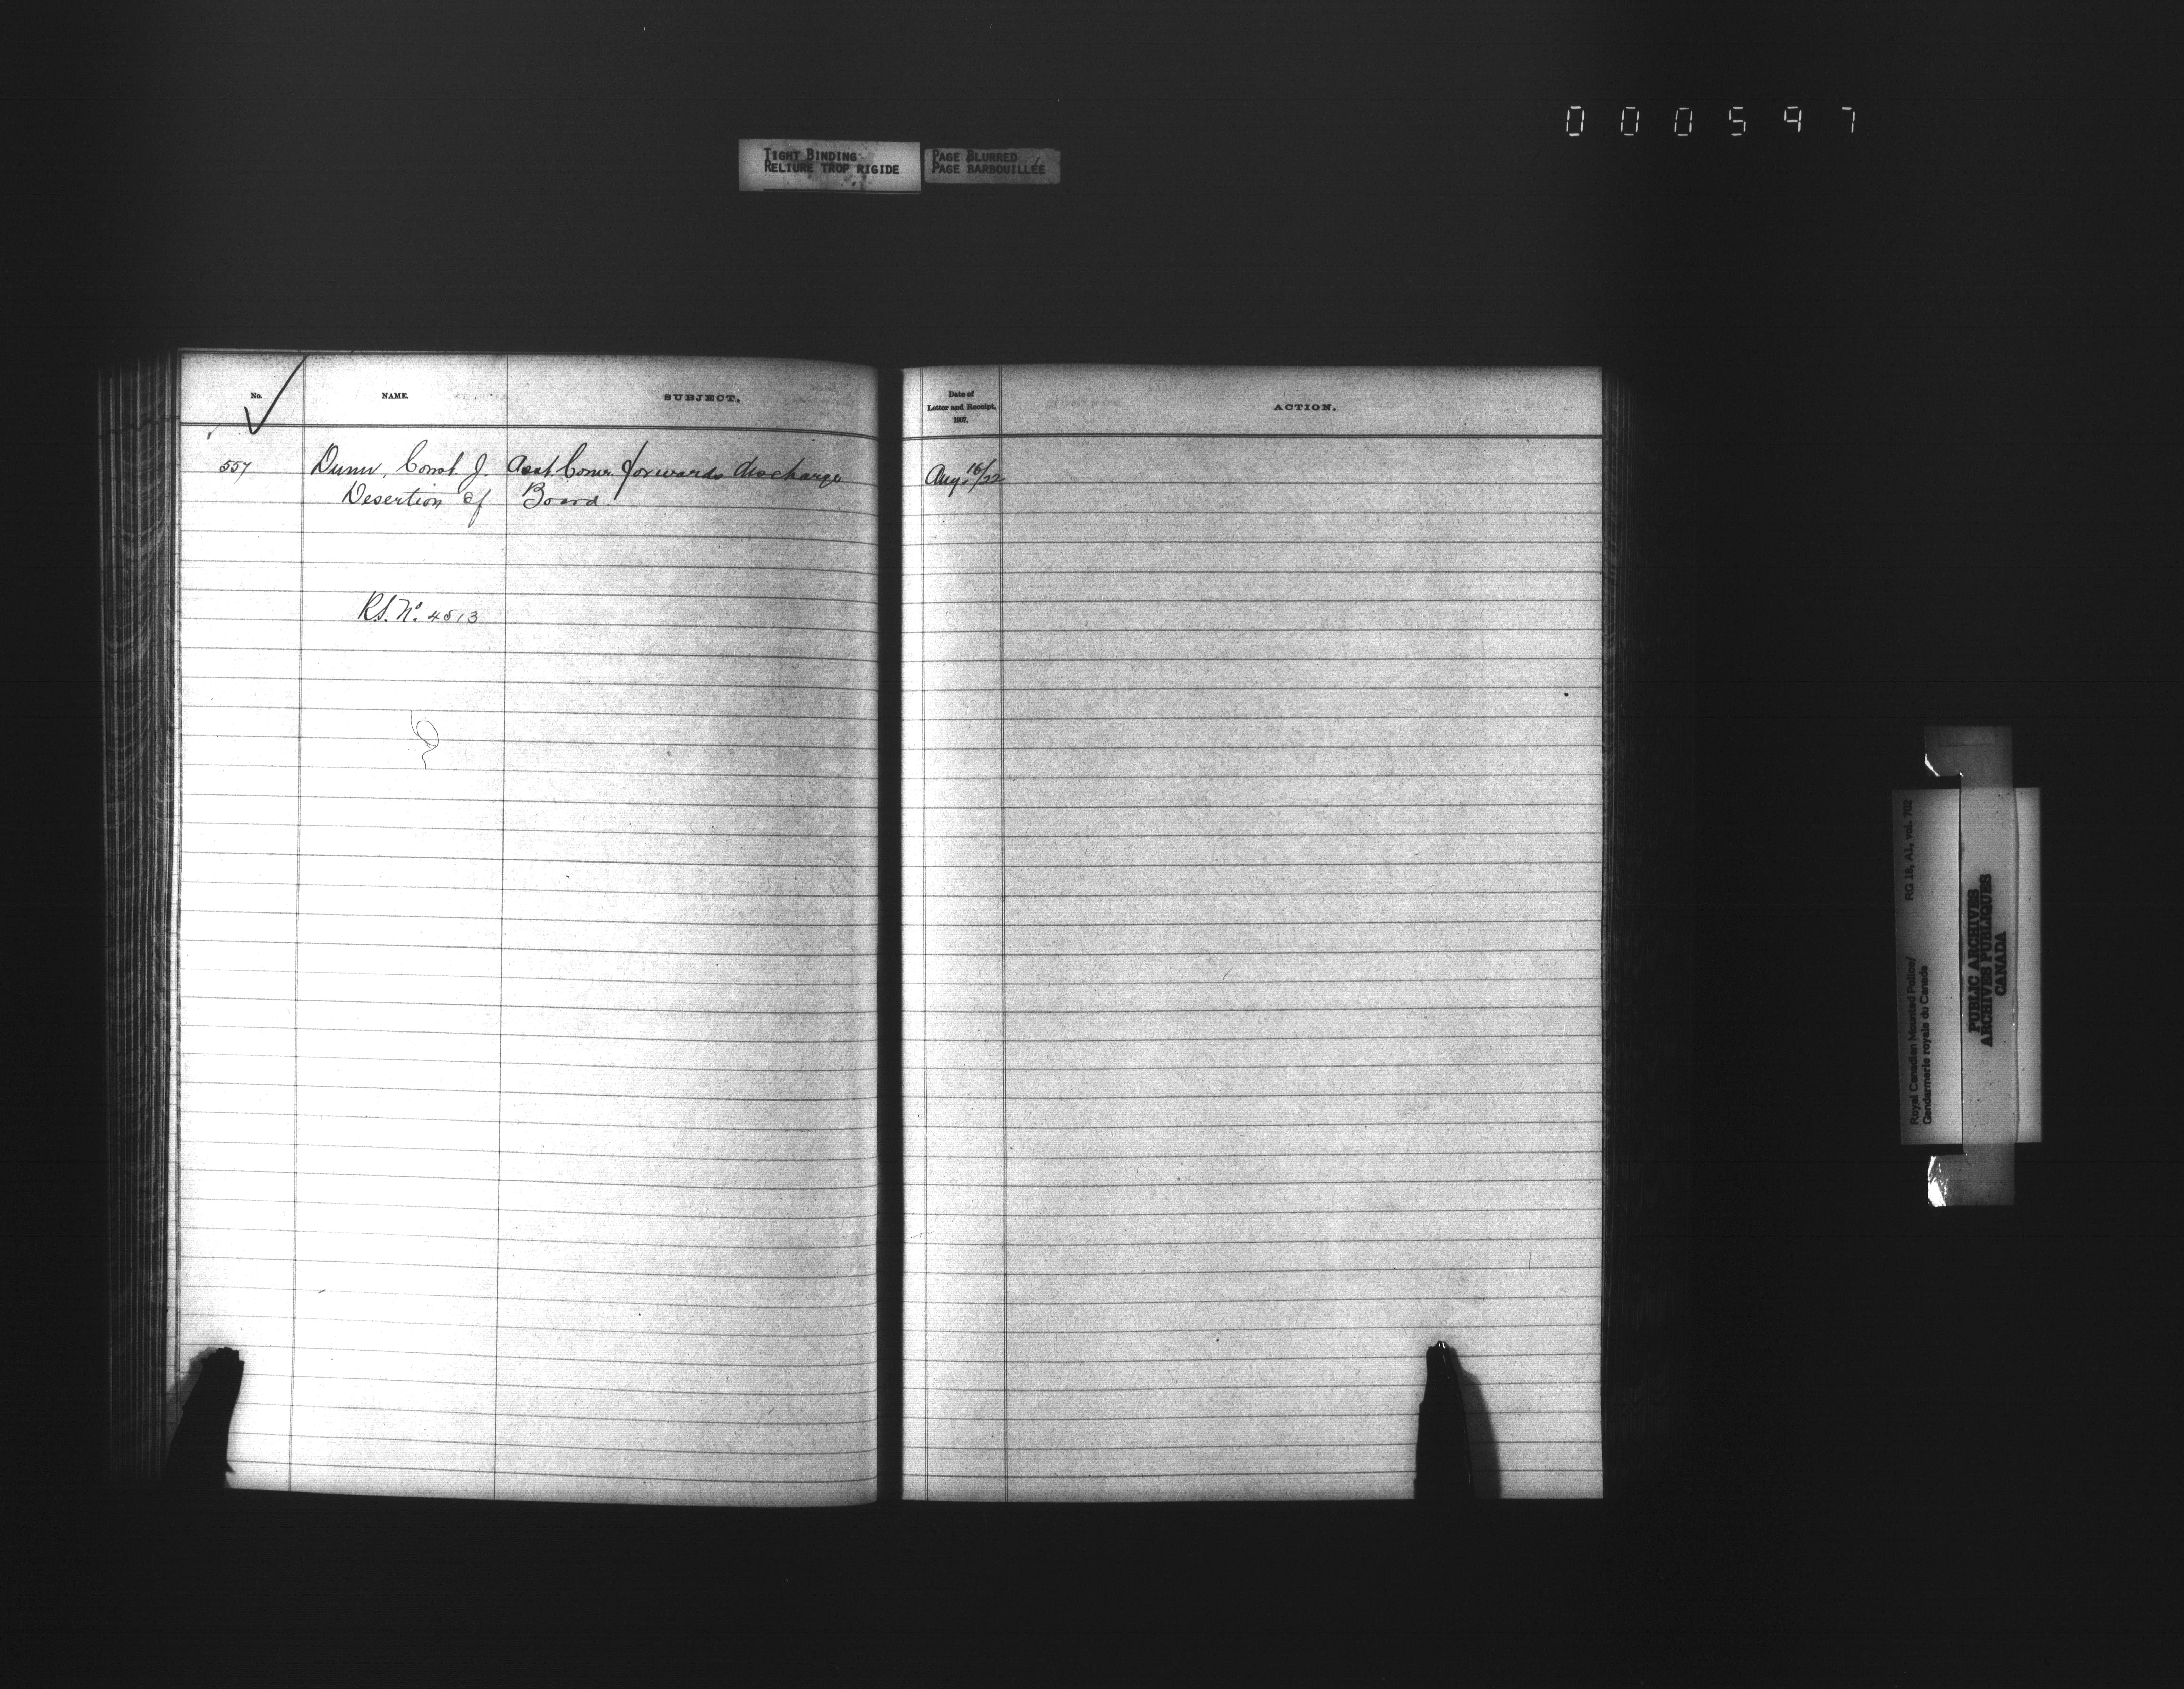 000597
TIGHT BINDING
RELIURE TROP RIGIDE
PAGE BLURRED
PAGE BARBOUILLÉE
No.
NAME.
SUBJECT.
Date of
Letter and Receipt,
1897.
ACTION.
557 Dunn, Const. J. Asst. Comr. forwards discharge Aug. 16/22
Desertion of Board.
R.S. No. 4513
RG 18, A1, vol. 702
Royal Canadian Mounted Police/
Gendarmerie royale du Canada
PUBLIC ARCHIVES
ARCHIVES PUBLIQUES
CANADA